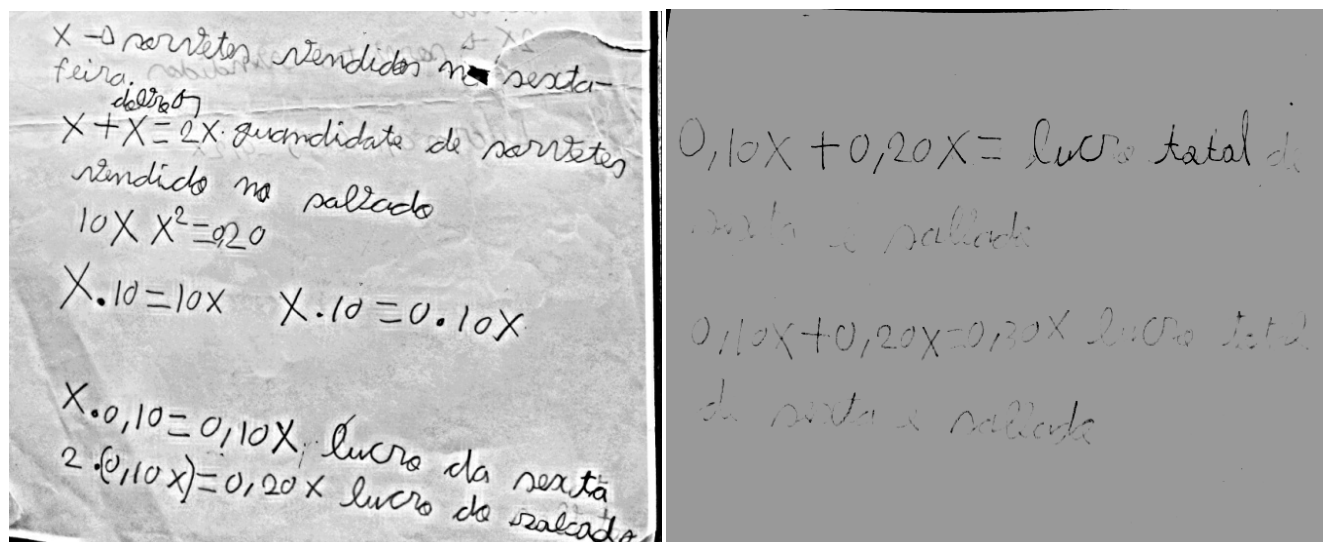 X → sorvetes vendidos na sexta-
feira.
dobro
X + X = 2X quandidate de sorvetes
vendido no sabado
10X X² = 020
X . 10 = 10X X . 10 = 0 . 10X
X . 0,10 = 0,10X, lucro da sexta
2 . (0,10X) = 0,20X lucro do sabado
0,10X + 0,20X = lucro total de
sexta e sabado
0,10X + 0,20X = 0,30X lucro total
de sexta e sabado